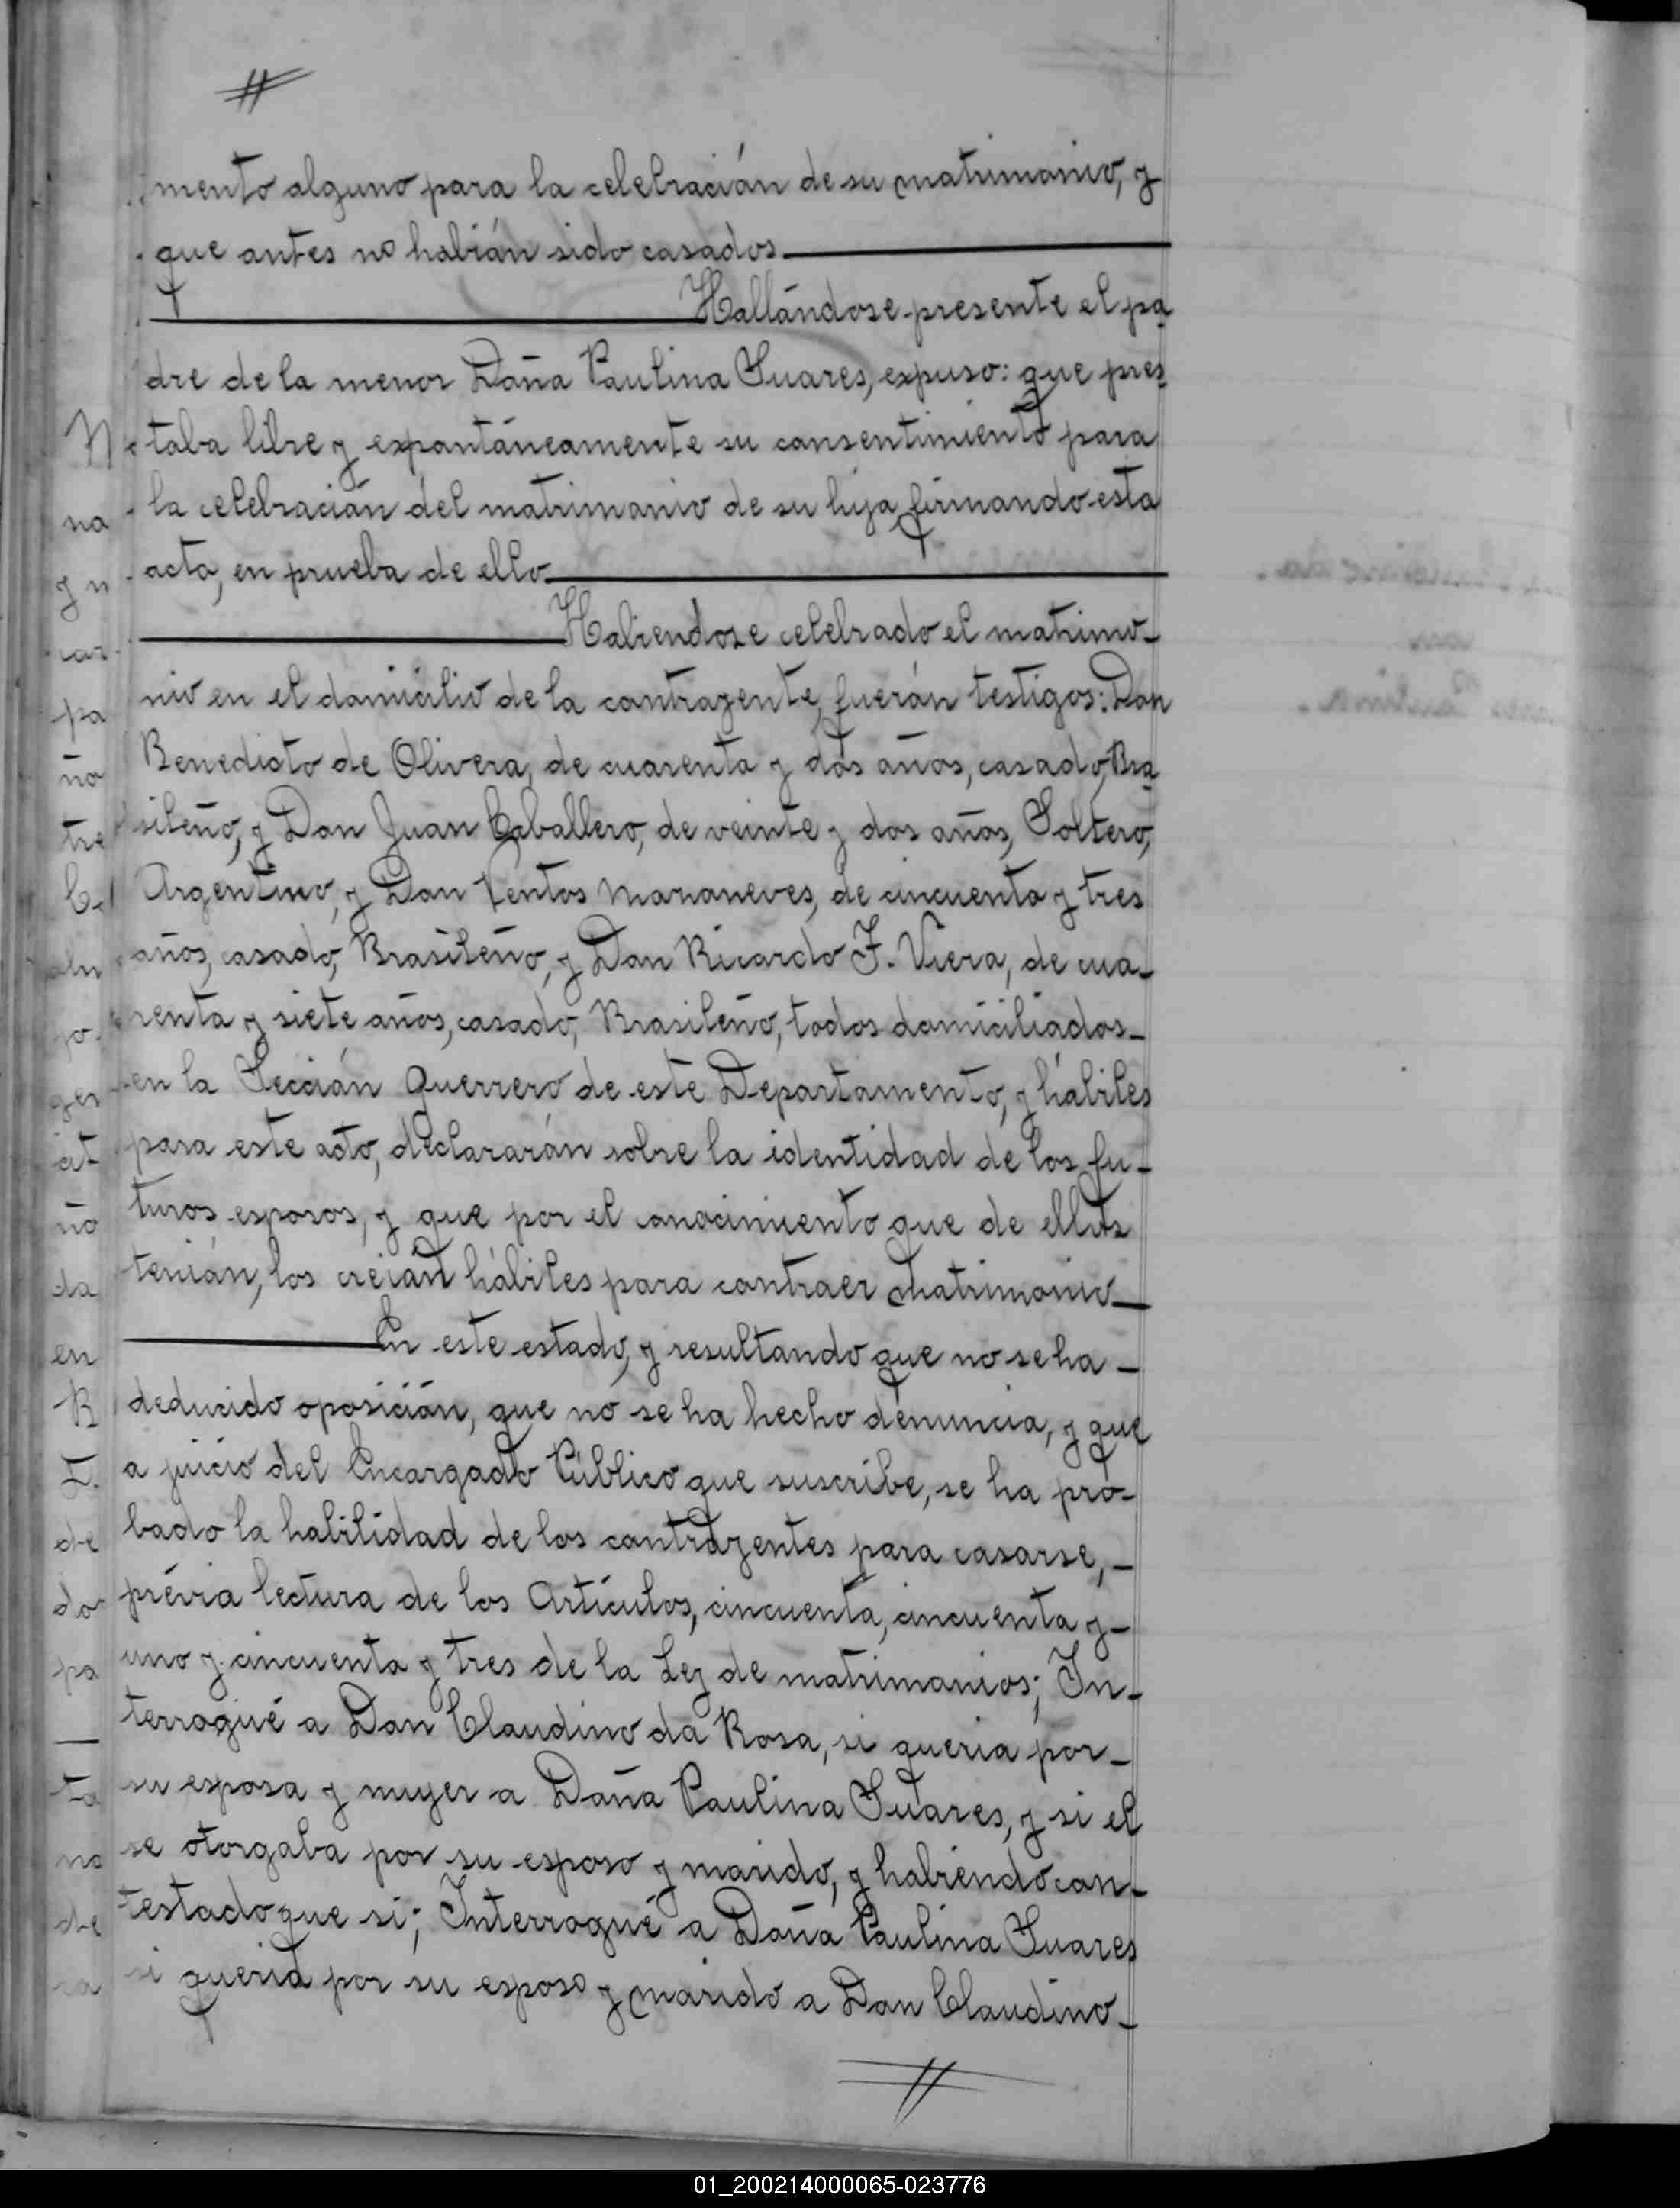 mento alguno para la celebración de su matrimonio, y
que antes no habián sido casados
Hallándose presente el pa
dre de la menor Doña Paulina Suares, expuso: que pres
taba libre y expontáneamente su consentimiento para
la celebración del matrimonio de su hija firmando esta
acta, en prueba de ello
Habiendose celebrado el matrimo-
nio en el domicilio de la contrayente, fuerón testigos: Don
Benedicto de Olivera, de cuarenta y dos años, casado, Bra
sileño, y Don Juan Caballero, de veinte y dos años, Soltero,
Argentino, y Don de cincuenta y tres
años, casado, Brasileño, y Don Ricardo F. Viera, de cua-
renta y siete años, casado, Brasileño, todos domiciliados-
en la Sección Guerrero de este Departamento, y hábiles
para este acto, declararán sobre la identidad de los fu-
turos esposos, y que por el conocimiento que de ellos
tenián, los creían hábiles para contraer Matrimonio-
En este estado, y resultando que no se ha-
deducido oposición, que no se ha hecho denuncia, y que
a juicio del Encargado Público que suscribe, se ha pro-
bado la habilidad de los contrayentes para casarse,-
prévia lectura de los Artículos, cincuenta, cincuenta y-
uno y cincuenta y tres de la Ley de matrimonios; In-
terrogué a Don Claudino da Rosa, si queria por-
su esposa y muger a Doña Paulina Suares, y si el
se otorgaba por su esposo y marido, y habiendo con-
testado que si; Interrogué a Doña Paulina Suares
si queria por su esposo y marido a Don Claudino-
01_200214000065-023776